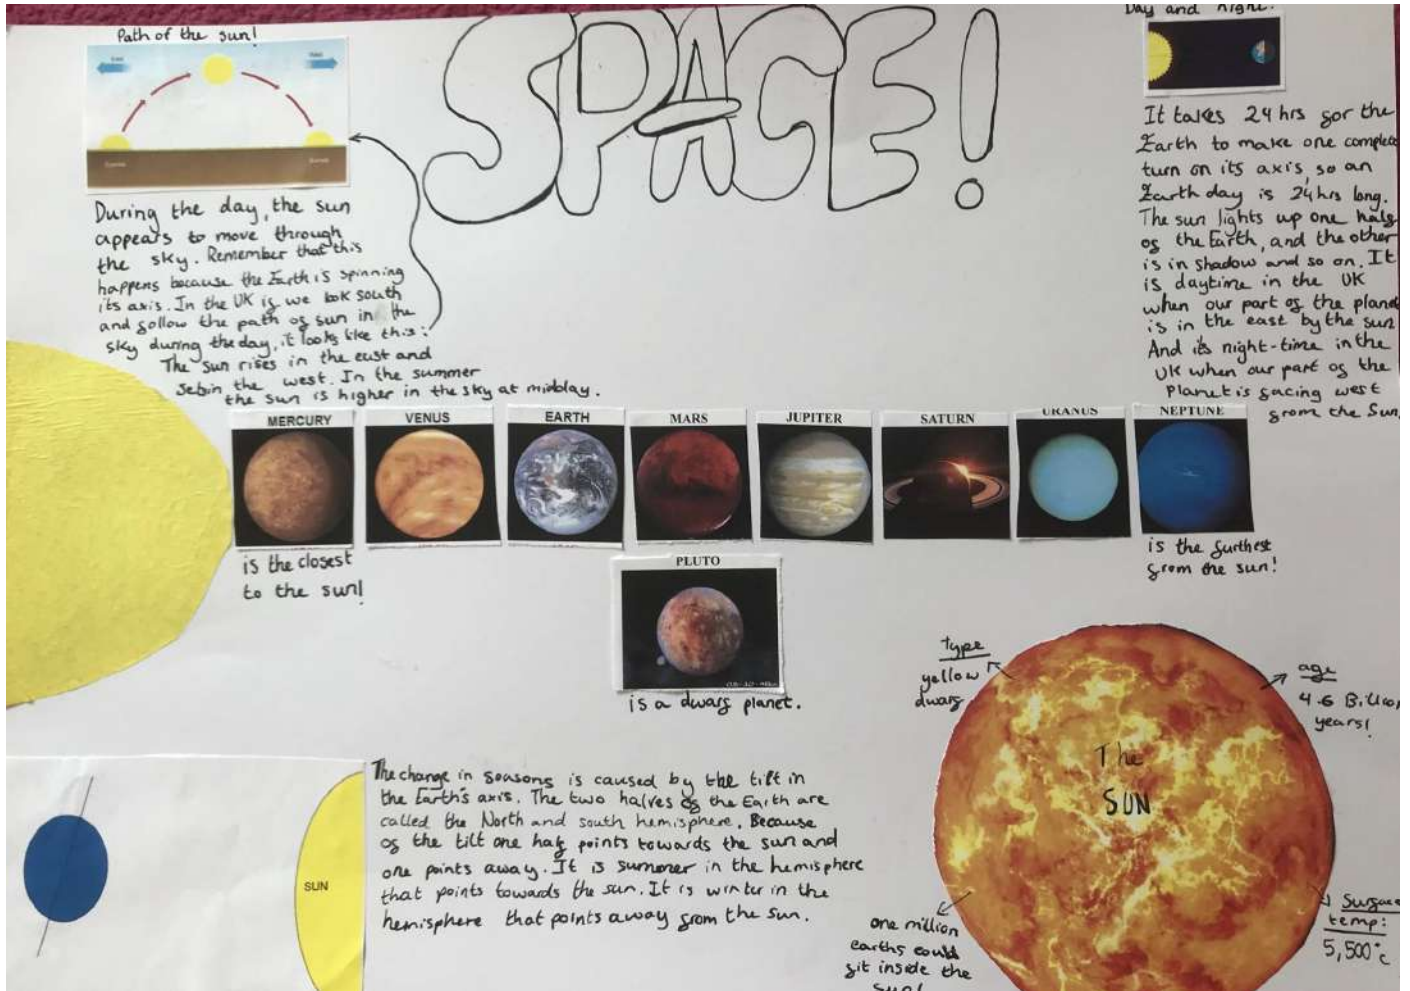 Path of the sun!
East
West
Sunrise
Sunset
During the day, the sun
appears to move through
the sky. Remember that this
happens because the Earth is spinning
its axis. In the UK if we look south
and follow the path of sun in the
sky during the day, it looks like this:
The sun rises in the east and
sets in the west. In the summer
the sun is higher in the sky at midday.
SPACE!
Day and night!
It takes 24 hrs for the
Earth to make one complete
turn on its axis, so an
Earth day is 24hrs long.
The sun lights up one half
of the Earth, and the other
is in shadow and so on. It
is daytime in the UK
when our part of the plane
is in the east by the sun
And its night-time in the
UK when our part of the
Planet is facing west
from the Sun.
MERCURY
VENUS
EARTH
MARS
JUPITER
SATURN
URANUS
NEPTUNE
is the closest
to the sun!
is the furthest
from the sun!
PLUTO
is a dwarf planet.
type
yellow
dwarf
age
4.6 Billion
years!
The
SUN
Surface
temp:
5,500°c
one million
earths could
fit inside the
sun!
SUN
The change in seasons is caused by the tilt in
the Earth's axis. The two halves of the Earth are
called the North and south hemisphere. Because
of the tilt one half points towards the sun and
one points away. It is summer in the hemisphere
that points towards the sun. It is winter in the
hemisphere that points away from the sun.